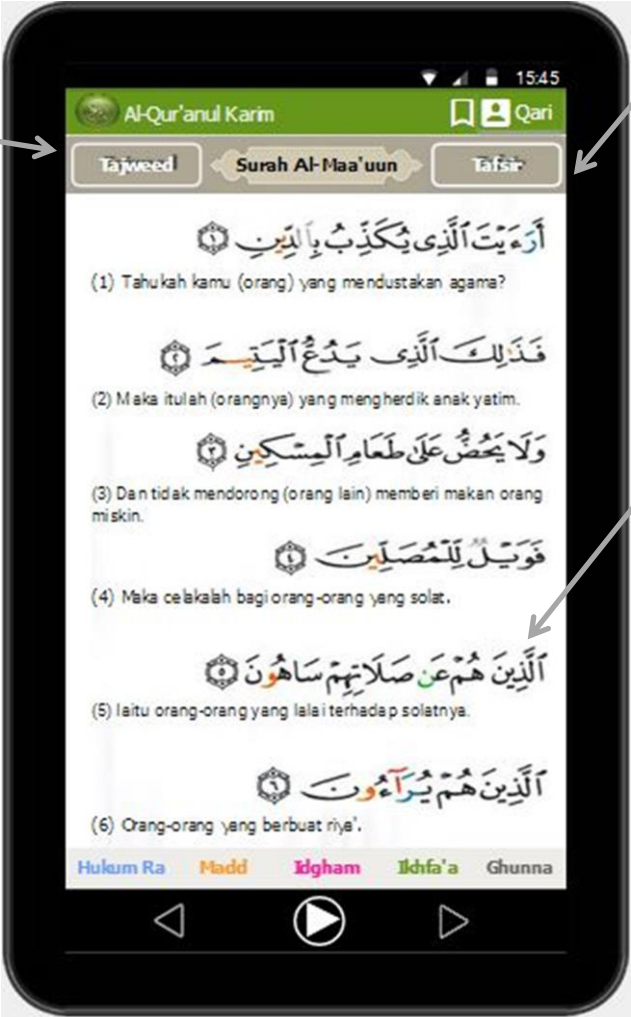 15:45
Al-Qur'anul Karim Qari
Tajweed Surah Al-Maa'uun Tafsir
أَرَءَيْتَ ٱلَّذِى يُكَذِّبُ بِٱلدِّينِ ١
(1) Tahukah kamu (orang) yang mendustakan agama?
فَذَٰلِكَ ٱلَّذِى يَدُعُّ ٱلْيَتِيمَ ٢
(2) Maka itulah (orangnya) yang mengherdik anak yatim.
وَلَا يَحُضُّ عَلَىٰ طَعَامِ ٱلْمِسْكِينِ ٣
(3) Dan tidak mendorong (orang lain) memberi makan orang
miskin.
فَوَيْلٌ لِّلْمُصَلِّينَ ٤
(4) Maka celakalah bagi orang-orang yang solat.
ٱلَّذِينَ هُمْ عَن صَلَاتِهِمْ سَاهُونَ ٥
(5) Iaitu orang-orang yang lalai terhadap solatnya.
ٱلَّذِينَ هُمْ يُرَآءُونَ ٦
(6) Orang-orang yang berbuat riya'.
Hukum Ra Madd Idgham Ikhfa'a Ghunna